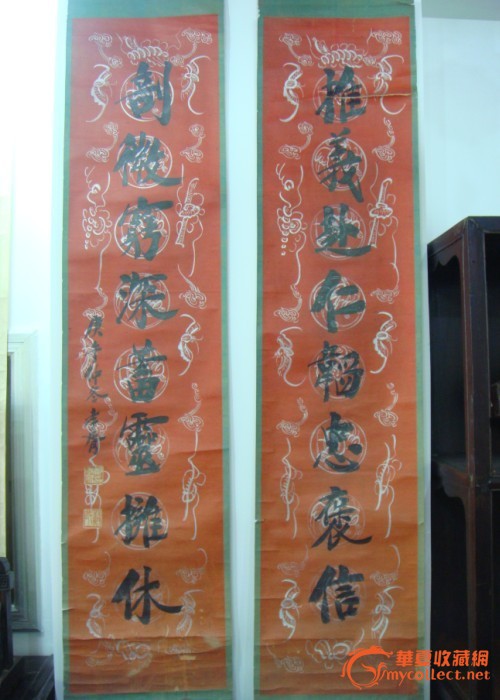 推義処仁韜忠褒信
剖微窮深蓄靈擁休
仲冬
華夏收藏網
mycollect.net